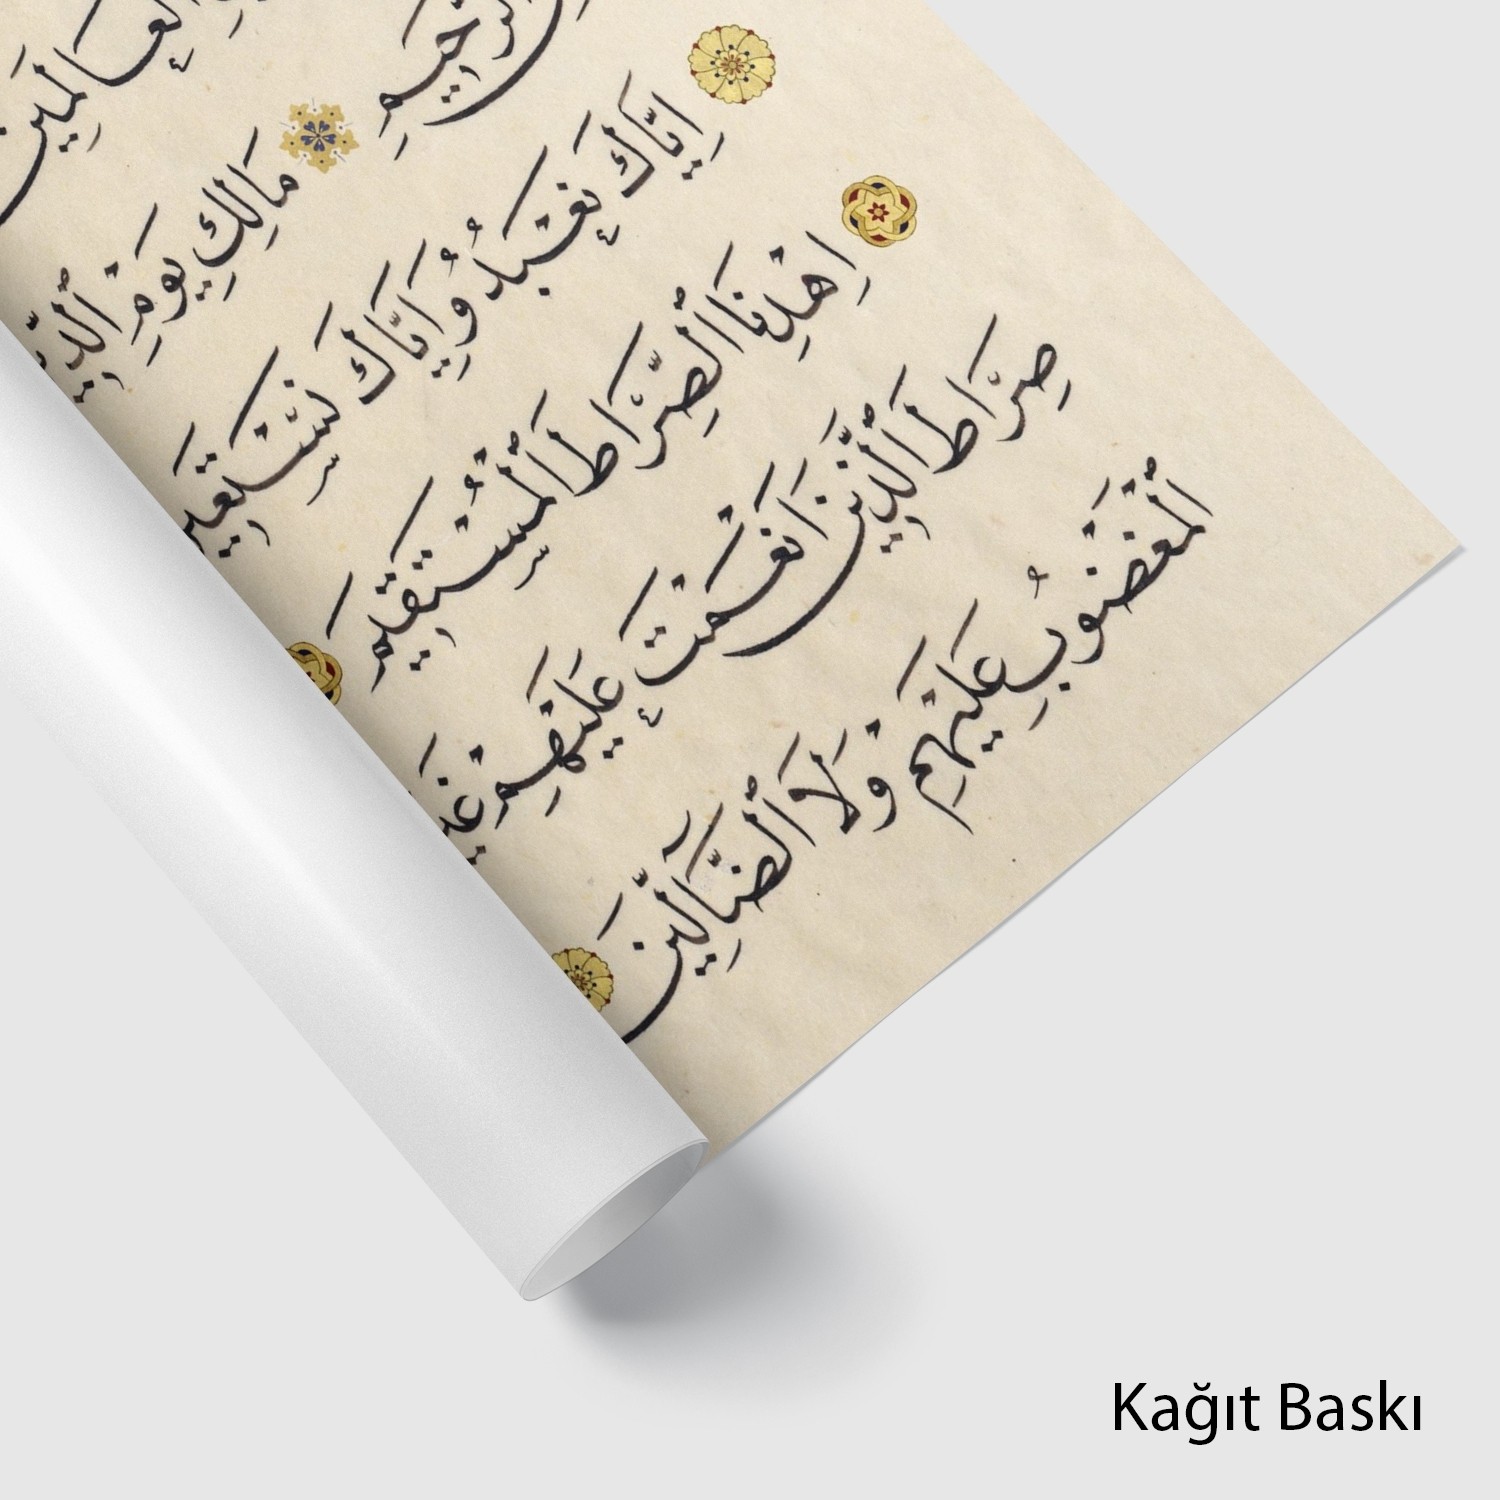 الْعَالَمِينَ
الرَّحِيمِ مَالِكِ يَوْمِ
اِيَّاكَ نَعْبُدُ وَاِيَّاكَ
اِهْدِنَا الصِّرَاطَ الْمُسْتَقِيمَ
صِرَاطَ الَّذِينَ اَنْعَمْتَ عَلَيْهِمْ
الْمَغْضُوبِ عَلَيْهِمْ وَلَا الضَّآلِّينَ
Kağıt Baskı